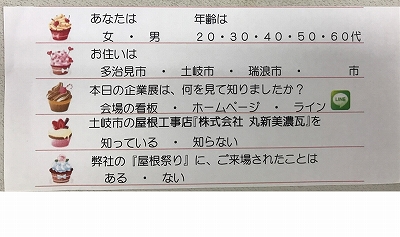 あなたは　年齢は
女　・　男　２０・３０・４０・５０・６０代
お住いは
多治見市　・　土岐市　・　瑞浪市　・　市
本日の企業展は、何を見て知りましたか？
会場の看板　・　ホームページ　・　ライン　LINE
土岐市の屋根工事店『株式会社　丸新美濃瓦』を
知っている　・　知らない
弊社の『屋根祭り』に、ご来場されたことは
ある　・　ない